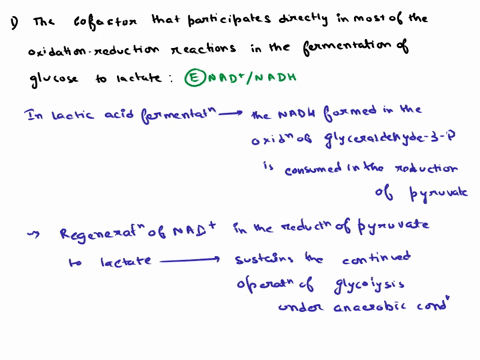 1) The cofactor that participates directly in most of the
oxidation-reduction reactions in the fermentation of
glucose to lactate : Ⓔ NAD⁺/NADH
In lactic acid fermentatⁿ → the NADH formed in the
oxidⁿ of glyceraldehyde-3-P
is consumed in the reduction
of pyruvate
→ Regeneratⁿ of NAD⁺ in the reductⁿ of pyruvate
to lactate → sustains the continued
operatⁿ of glycolysis
under anaerobic condⁿ